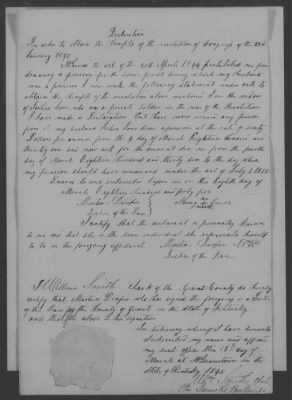 Declaration
In order to obtain the benefits of the resolution of Congress of the 23rd
January 1845
Whereas the act of the 30th April 1844 prohibited me from
drawing a pension for the same period during which my husband
was a pensioner I now make the following statement under oath to
obtain the benefits of the resolution above mentioned I am the widow
of who was a private soldier in the war of the Revolution
I have made a Declaration but have never received any pension
from it my husband drew a pension at the rate of
Dollars per annum from the 4 day of March Eighteen Hundred and
thirty one and now ask for the amount due me from the fourth
day of March Eighteen hundred and thirty six to the day when
my pension should have commenced under the act of July 7 1838
Sworn to and subscribed before me on this Eighth day of
March Eighteen hundred and forty five
Justice of the Peace
I certify that the declarant is personally known
to me and that she is the same individual she represents herself
to be in the foregoing affidavit
Justice of the Peace
I William Smith Clerk of the Grant County do hereby
certify that who has signed the foregoing is a Justice
of the Peace for the County of Grant in the State of Kentucky
and that the above is his signature
In testimony whereof I have hereunto
subscribed my name and affixed
my seal office this 18th day of
March at Williamstown in the
State of Kentucky 1845
Wm Smith Clerk